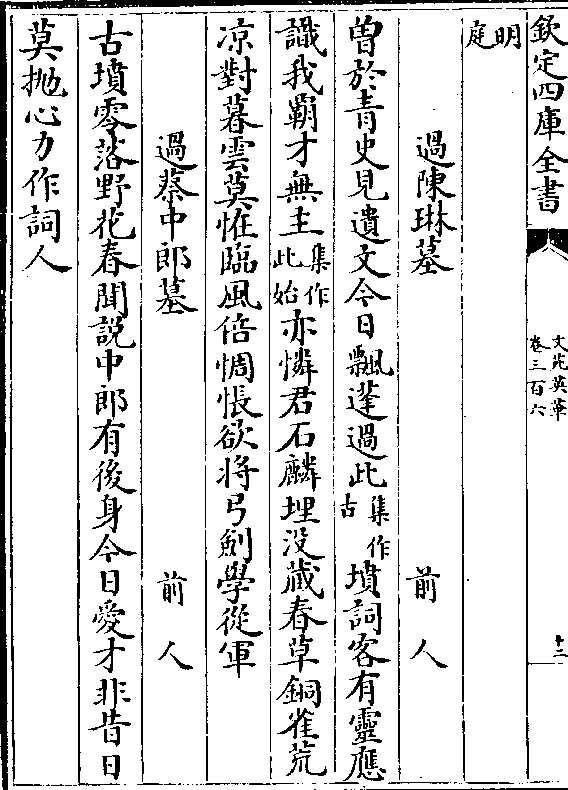 欽定四庫全書
文苑英華
卷三百六
十三
明庭
過陳琳墓 前人
曽於青史見遺文今日飄蓬過此集作古墳詞客有靈應
識我覇才無主集作此始亦憐君石麟埋没藏春草銅雀荒
凉對暮雲莫恠臨風倍惆悵欲将弓劍學從軍
過蔡中郎墓 前人
古墳零落野花春聞説中郎有後身今日愛才非昔日
莫抛心力作詞人